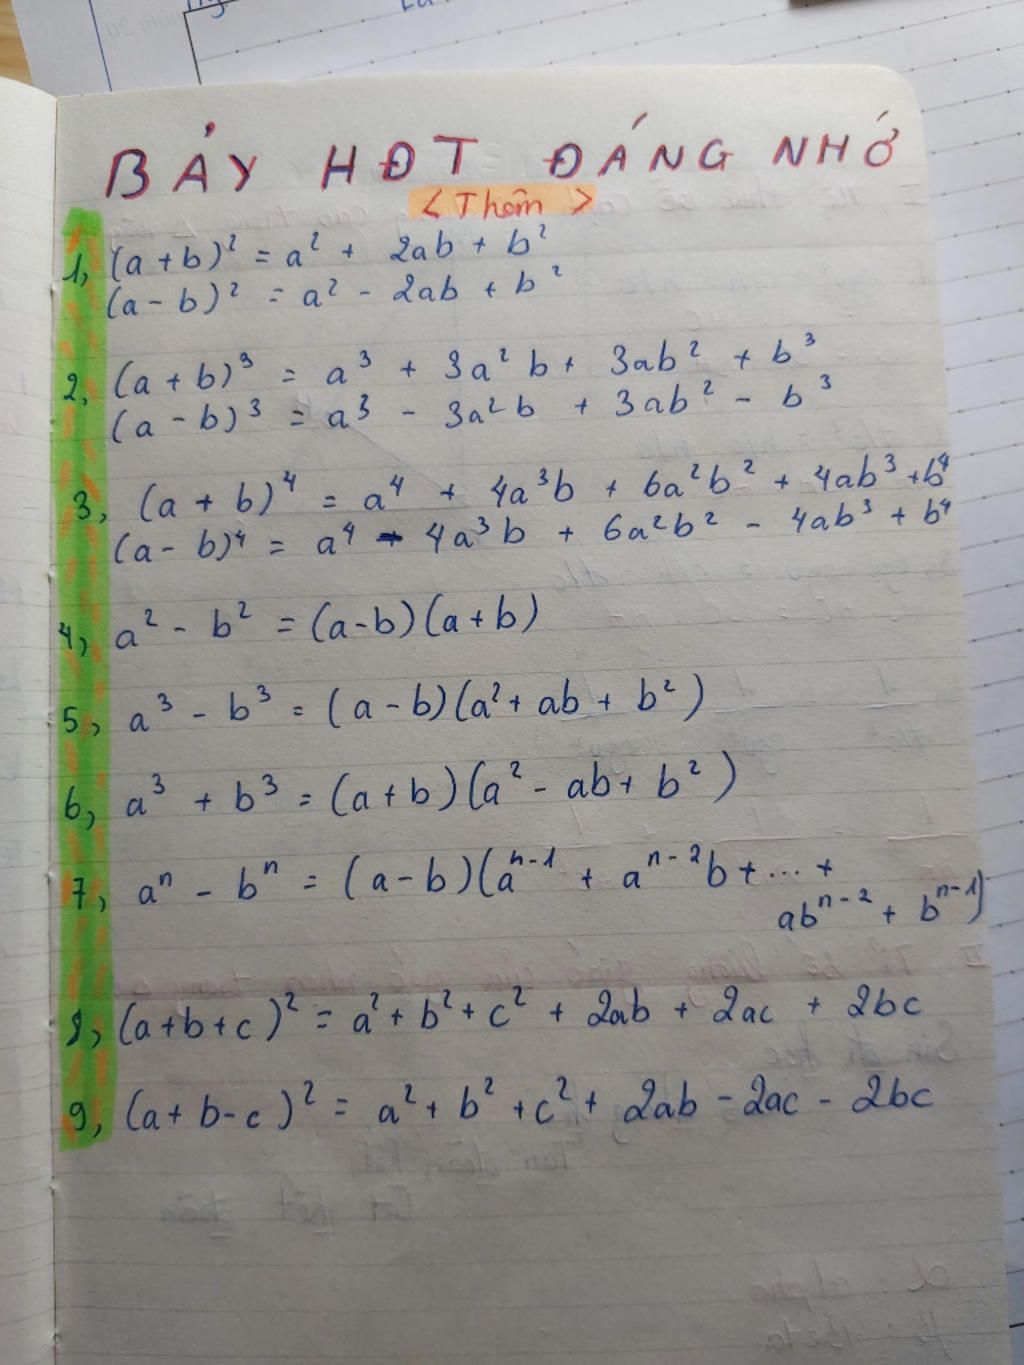 BẢY HĐT ĐÁNG NHỚ
< Thêm >
1, (a + b)² = a² + 2ab + b²
(a - b)² = a² - 2ab + b²
2, (a + b)³ = a³ + 3a²b + 3ab² + b³
(a - b)³ = a³ - 3a²b + 3ab² - b³
3, (a + b)⁴ = a⁴ + 4a³b + 6a²b² + 4ab³ + b⁴
(a - b)⁴ = a⁴ - 4a³b + 6a²b² - 4ab³ + b⁴
4, a² - b² = (a-b)(a+b)
5, a³ - b³ = (a-b)(a² + ab + b²)
6, a³ + b³ = (a+b)(a² - ab + b²)
7, aⁿ - bⁿ = (a-b)(aⁿ⁻¹ + aⁿ⁻²b + ... +
abⁿ⁻² + bⁿ⁻¹)
8, (a+b+c)² = a² + b² + c² + 2ab + 2ac + 2bc
9, (a+b-c)² = a² + b² + c² + 2ab - 2ac - 2bc